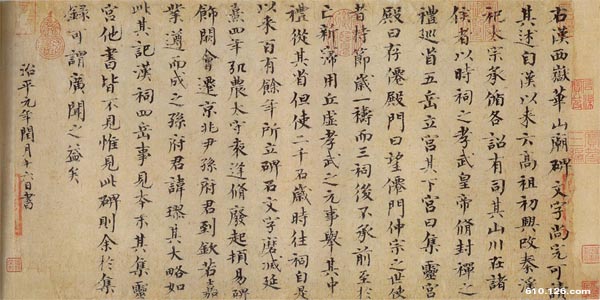 右漢西嶽華山廟碑文字尚完可
其述自漢以來云高祖初興改秦淫
祀太宗承循各詔有司其山川在諸
侯者以時祠之孝武皇帝脩封禪之
禮巡省五岳立宮其下宮曰集靈宮
殿曰存僊殿門曰望僊門仲宗之世使
者持節歲一禱而三祠後不承前至於
亡新寖用丘虛孝武之元事舉其中
禮從其省但使二千石歲時往祠自是
以來百有餘年所立碑石文字磨滅延
熹四年弘農太守袁逢脩廢起頓易碑
飾闕會遷京兆尹孫府君到欽若嘉
業遵而成之孫府君諱璆其大略如
此其記漢祠四岳事見本末其集靈
宮他書皆不見惟見此碑則余於集
錄可謂廣聞之益矣
治平元年閏月十六日書
610.126.com